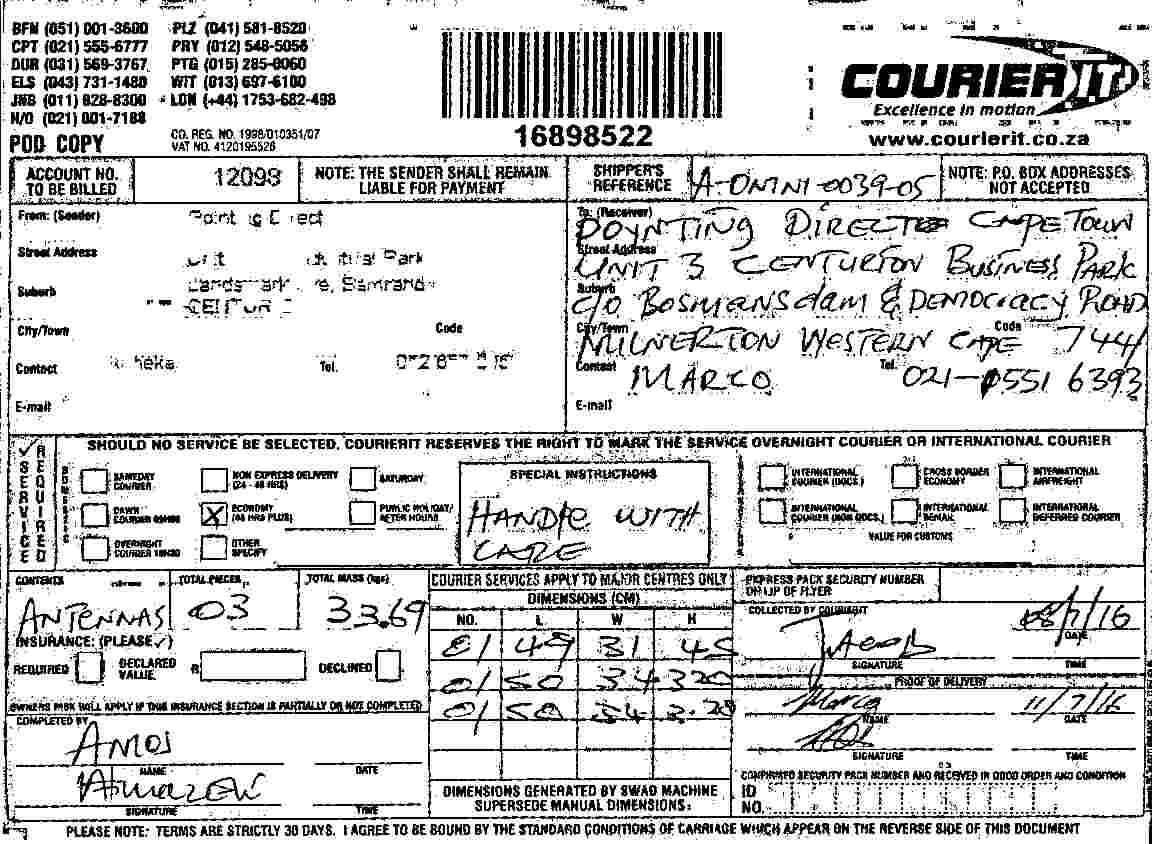 BFN (051) 001-3600 PLZ (041) 581-8520
CPT (021) 555-6777 PRY (012) 548-5056
DUR (031) 569-3767 PTG (015) 285-0060
ELS (043) 731-1480 WIT (013) 697-6100
JNB (011) 828-8300 LON (+44) 1753-682-498
N/O (021) 001-7188
POD COPY
CO. REG. NO. 1998/010351/07
VAT NO. 4120195526
16898522
COURIER IT
Excellence in motion
www.courierit.co.za
ACCOUNT NO. TO BE BILLED
12098
NOTE: THE SENDER SHALL REMAIN LIABLE FOR PAYMENT
SHIPPER'S REFERENCE
NOTE: P.O. BOX ADDRESSES NOT ACCEPTED
From: (Sender)
Street Address
Park
Suburb
City/Town Code
Contact Tel.
E-mail
To: (Receiver)
POYNTING DIRECT CAPE TOWN
Street Address
UNIT 3 CENTURION BUSINESS PARK
Suburb
c/o BOSMANSdam & DEMOCRACY ROAD
City/Town Code
MILNERTON WESTERN CAPE 7441
Contact MARCO
Tel. 021-551 6393
E-mail
SERVICE REQUIRED
SHOULD NO SERVICE BE SELECTED, COURIERIT RESERVES THE RIGHT TO MARK THE SERVICE OVERNIGHT COURIER OR INTERNATIONAL COURIER
SAMEDAY COURIER
NON EXPRESS DELIVERY (24 - 48 HRS)
SATURDAY
DAWN COURIER
X ECONOMY (48 HRS PLUS)
PUBLIC HOLIDAY/ AFTER HOURS
OVERNIGHT COURIER 10H30
OTHER SPECIFY
SPECIAL INSTRUCTIONS
HANDLE WITH CARE
INTERNATIONAL COURIER (DOCS.)
CROSS BORDER ECONOMY
INTERNATIONAL AIRFREIGHT
INTERNATIONAL COURIER (NON DOCS.)
INTERNATIONAL
INTERNATIONAL DEFERRED COURIER
VALUE FOR CUSTOMS
CONTENTS
ANTENNAS
TOTAL PIECES
03
TOTAL MASS (kgs)
33.69
INSURANCE: (PLEASE ✓)
REQUIRED
DECLARED VALUE. R
DECLINED
OWNERS RISK WILL APPLY IF THIS INSURANCE SECTION IS PARTIALLY OR NOT COMPLETED
COMPLETED BY
AMOS
NAME DATE
SIGNATURE TIME
COURIER SERVICES APPLY TO MAJOR CENTRES ONLY
DIMENSIONS (CM)
NO. L W H
01 49 31 45
01 50 34
01 50
DIMENSIONS GENERATED BY SWAD MACHINE SUPERSEDE MANUAL DIMENSIONS:
EXPRESS PACK SECURITY NUMBER
COLLECTED BY COURIERIT
SIGNATURE
DATE
TIME
PROOF OF DELIVERY
Marco
NAME
11/7/16
DATE
SIGNATURE TIME
CONFIRMED SECURITY PACK NUMBER AND RECEIVED IN GOOD ORDER AND CONDITION
ID NO.
PLEASE NOTE: TERMS ARE STRICTLY 30 DAYS. I AGREE TO BE BOUND BY THE STANDARD CONDITIONS OF CARRIAGE WHICH APPEAR ON THE REVERSE SIDE OF THIS DOCUMENT